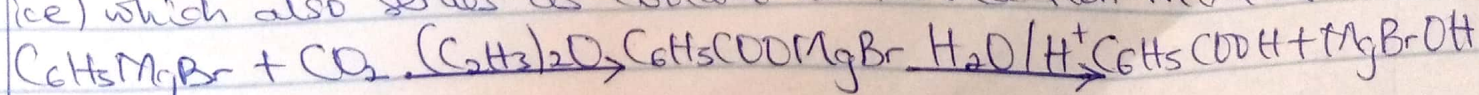 ice) which also
C6H5MgBr + CO2 (C2H3)2O→ C6H5COOMgBr H2O/H+→ C6H5COOH + MgBrOH